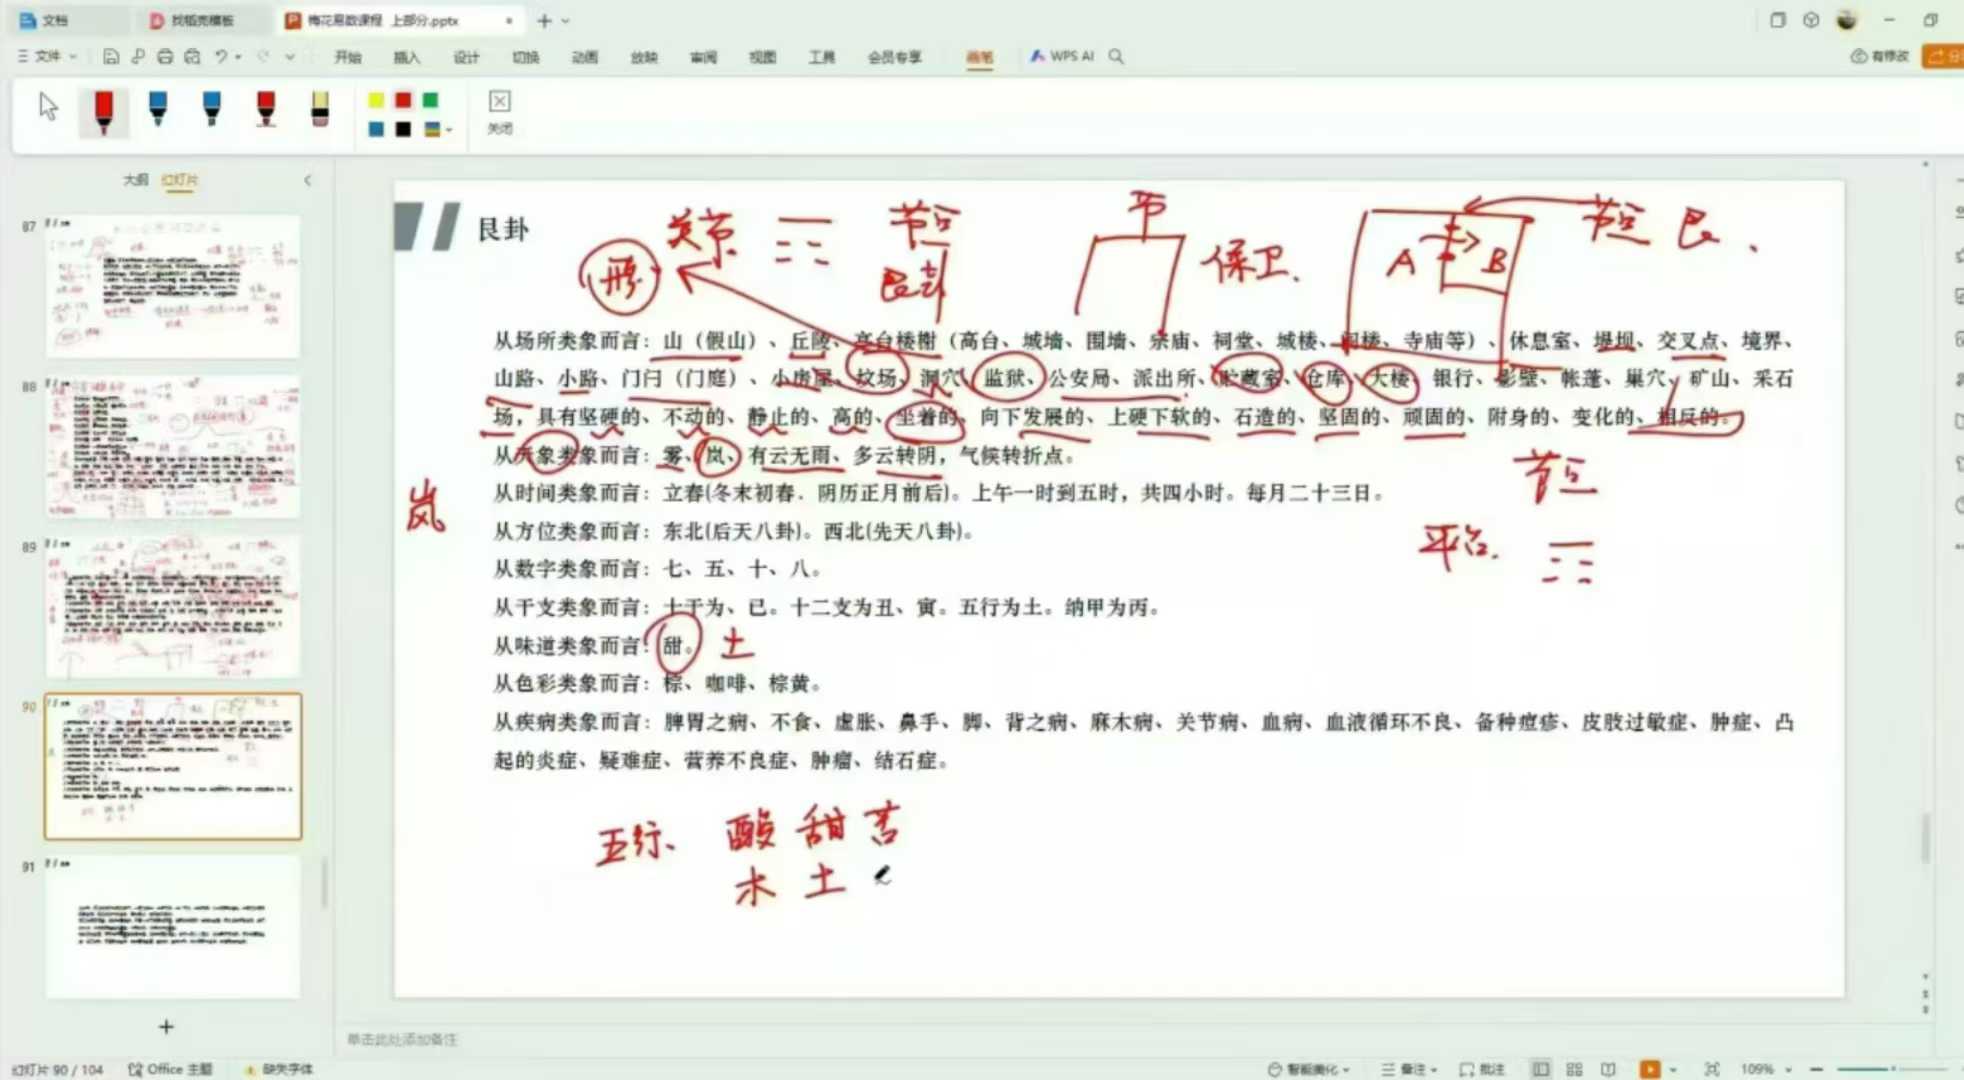 文档
找稻壳模板
梅花易数课程 上部分.pptx
文件
开始 插入 设计 切换 动画 放映 审阅 视图 工具 会员专享 画笔 WPS AI
有修改
关闭
大纲 幻灯片
87
88
89
90
91
艮卦
形 关节 节点 艮卦
节 保卫.
A B 节点 艮.
从场所类象而言：山（假山）、丘陵、高台楼榭（高台、城墙、围墙、宗庙、祠堂、城楼、阁楼、寺庙等）、休息室、堤坝、交叉点、境界、
山路、小路、门闩（门庭）、小房屋、坟场、洞穴、监狱、公安局、派出所、贮藏室、仓库、大楼、银行、影壁、帐蓬、巢穴、矿山、采石
场，具有坚硬的、不动的、静止的、高的、坐着的、向下发展的、上硬下软的、石造的、坚固的、顽固的、附身的、变化的、相反的。
从天象类象而言：雾、岚、有云无雨、多云转阴，气候转折点。
节点
从时间类象而言：立春(冬末初春．阴历正月前后)。上午一时到五时，共四小时。每月二十三日。
岚
从方位类象而言：东北(后天八卦)。西北(先天八卦)。
平台.
从数字类象而言：七、五、十、八。
从干支类象而言：十干为、己。十二支为丑、寅。五行为土。纳甲为丙。
从味道类象而言：甜。 土
从色彩类象而言：棕、咖啡、棕黄。
从疾病类象而言：脾胃之病、不食、虚胀、鼻手、脚、背之病、麻木病、关节病、血病、血液循环不良、备种痘疹、皮肢过敏症、肿症、凸
起的炎症、疑难症、营养不良症、肿瘤、结石症。
五行、 酸 甜 苦
木 土
单击此处添加备注
幻灯片 90 / 104 Office 主题 缺失字体
智能美化 备注 批注 109%